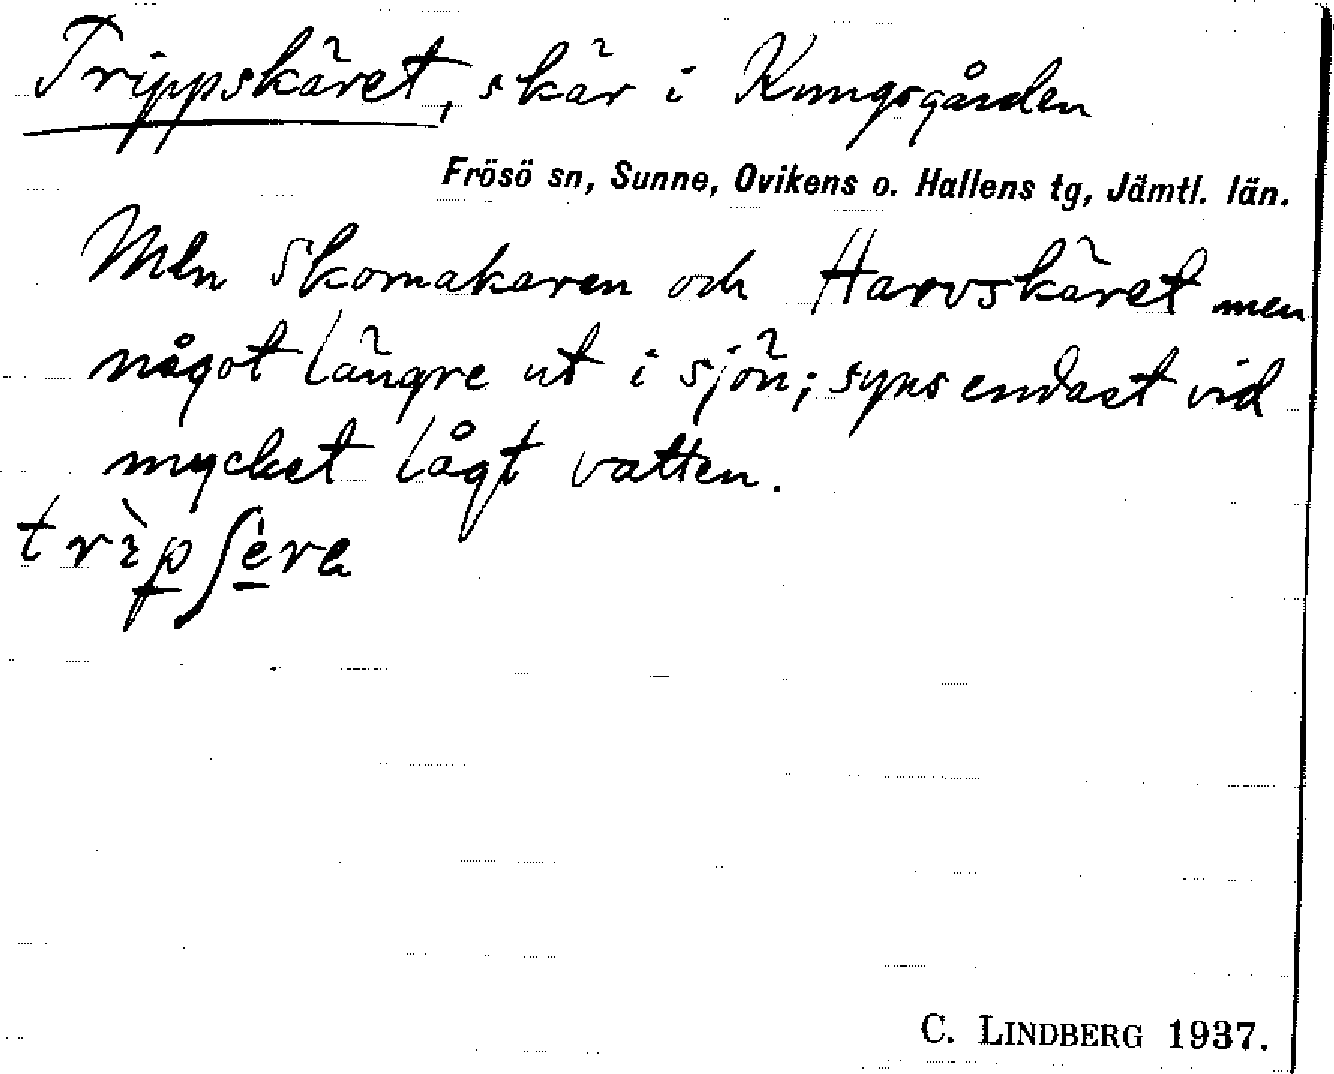 Trippskäret, skär i Kungsgården
Frösö sn, Sunne, Ovikens o. Hallens tg, Jämtl. län.
Mln Skomakaren och Harvskäret men
något längre ut i sjön; syns endast vid
mycket lågt vatten.
trɪ̀pʃèra
C. LINDBERG 1937.